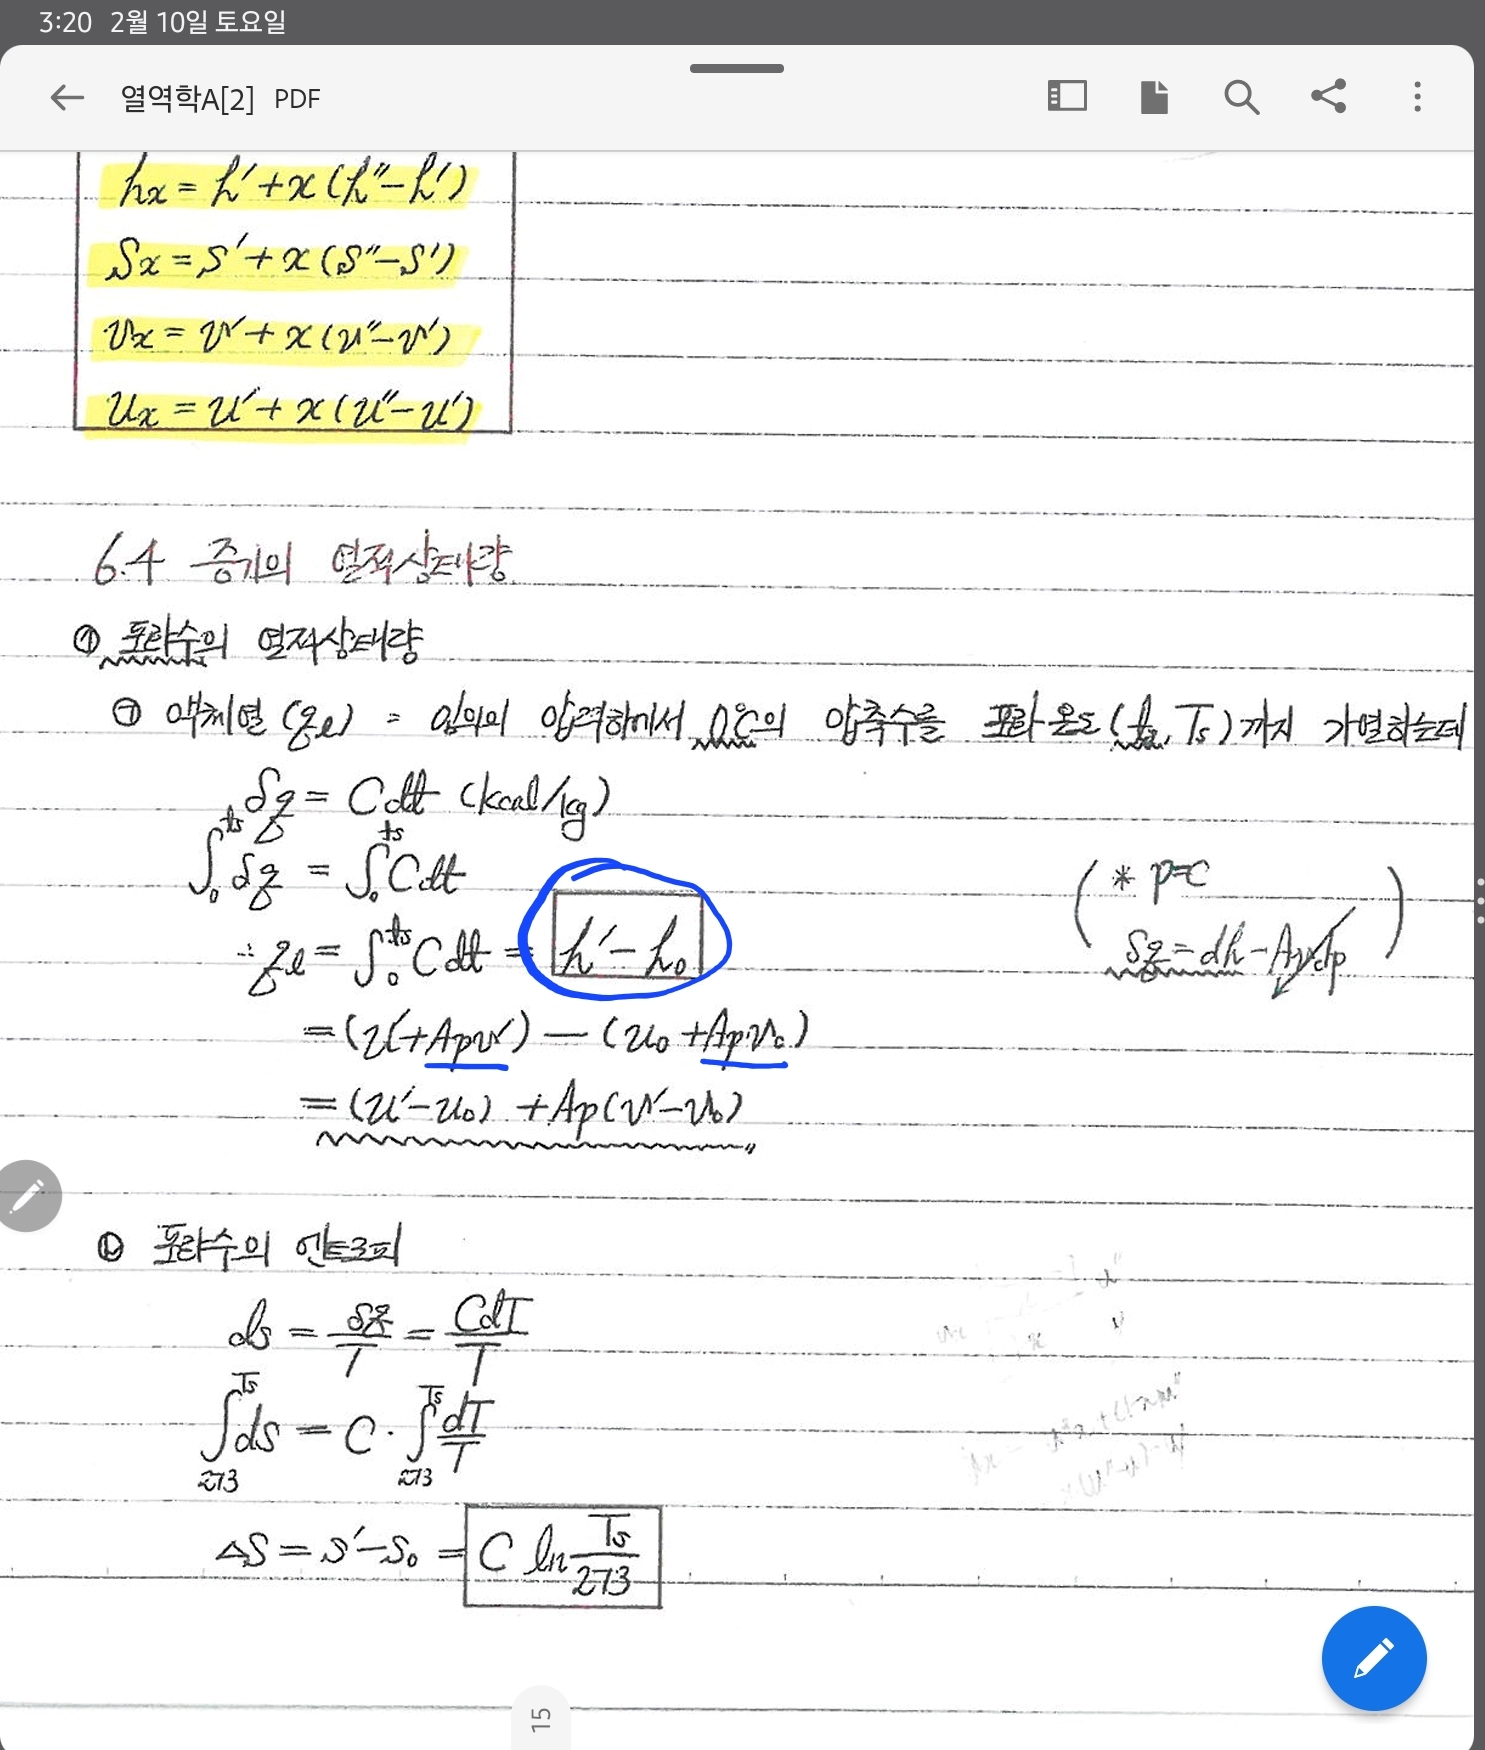 3:20 2월 10일 토요일
열역학A[2] PDF
hx = h′+x(h″−h′)
Sx = S′+x(S″−S′)
vx = v′+x(v″−v′)
ux = u′+x(u″−u′)
6.4 증기의 열적상태량
① 포화수의 열적상태량
㉠ 액체열(qℓ) = 임의의 압력하에서 0℃의 압축수를 포화온도(ts, Ts)까지 가열하는데
δq = Cdt (kcal/kg)
∫₀^ts δq = ∫₀^ts Cdt
(* p=C
∴ qℓ = ∫₀^ts Cdt = h′−h₀
δq=dh−Avdp)
=(u′+Apv′) − (u₀+Apv₀)
=(u′−u₀)+Ap(v′−v₀)〃
㉡ 포화수의 엔트로피
ds = δq/T = CdT/T
∫₂₇₃^Ts ds = C·∫₂₇₃^Ts dT/T
△S = S′−S₀ = C ln Ts/273
15